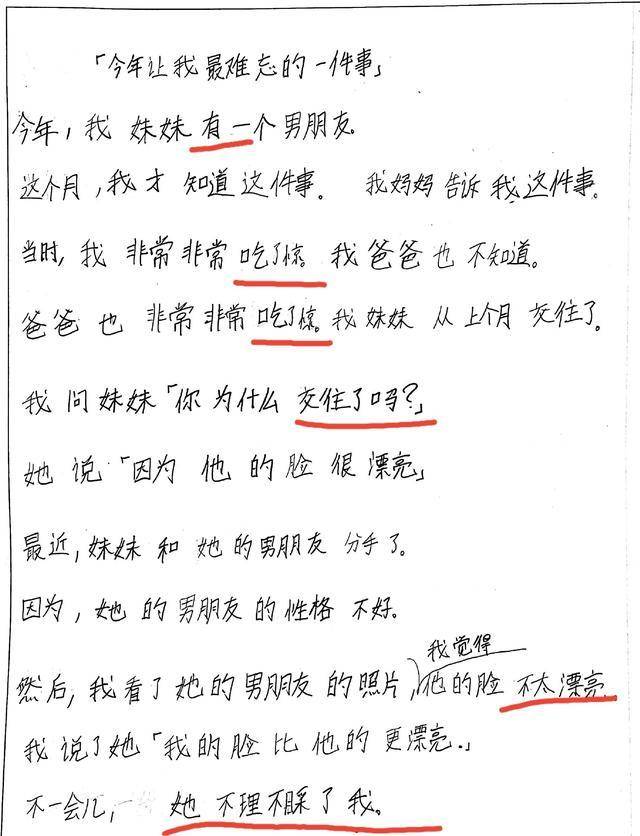 「今年让我最难忘的一件事」
今年，我 妹妹 有一个男朋友。
这个月，我才 知道这件事。 我妈妈告诉我这件事。
当时，我 非常非常 吃了惊。我爸爸也不知道。
爸爸 也 非常非常 吃了惊。我妹妹 从上个月 交往了。
我 问妹妹「你为什么 交往了吗？」
她 说「因为 他 的 脸 很 漂亮」
最近，妹妹 和 她的男朋友 分手了。
因为，她 的 男朋友的性格 不好。
我觉得
然后，我看了她的男朋友 的照片，他的脸 不太漂亮
我 说了她「我的脸比他的更漂亮。」
不一会儿，她 不理不睬了我。